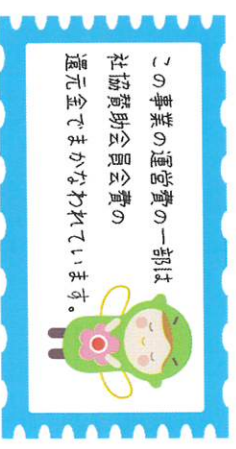 この事業の運営費の一部は
社協賛助会員会費の
還元金でまかなわれています。